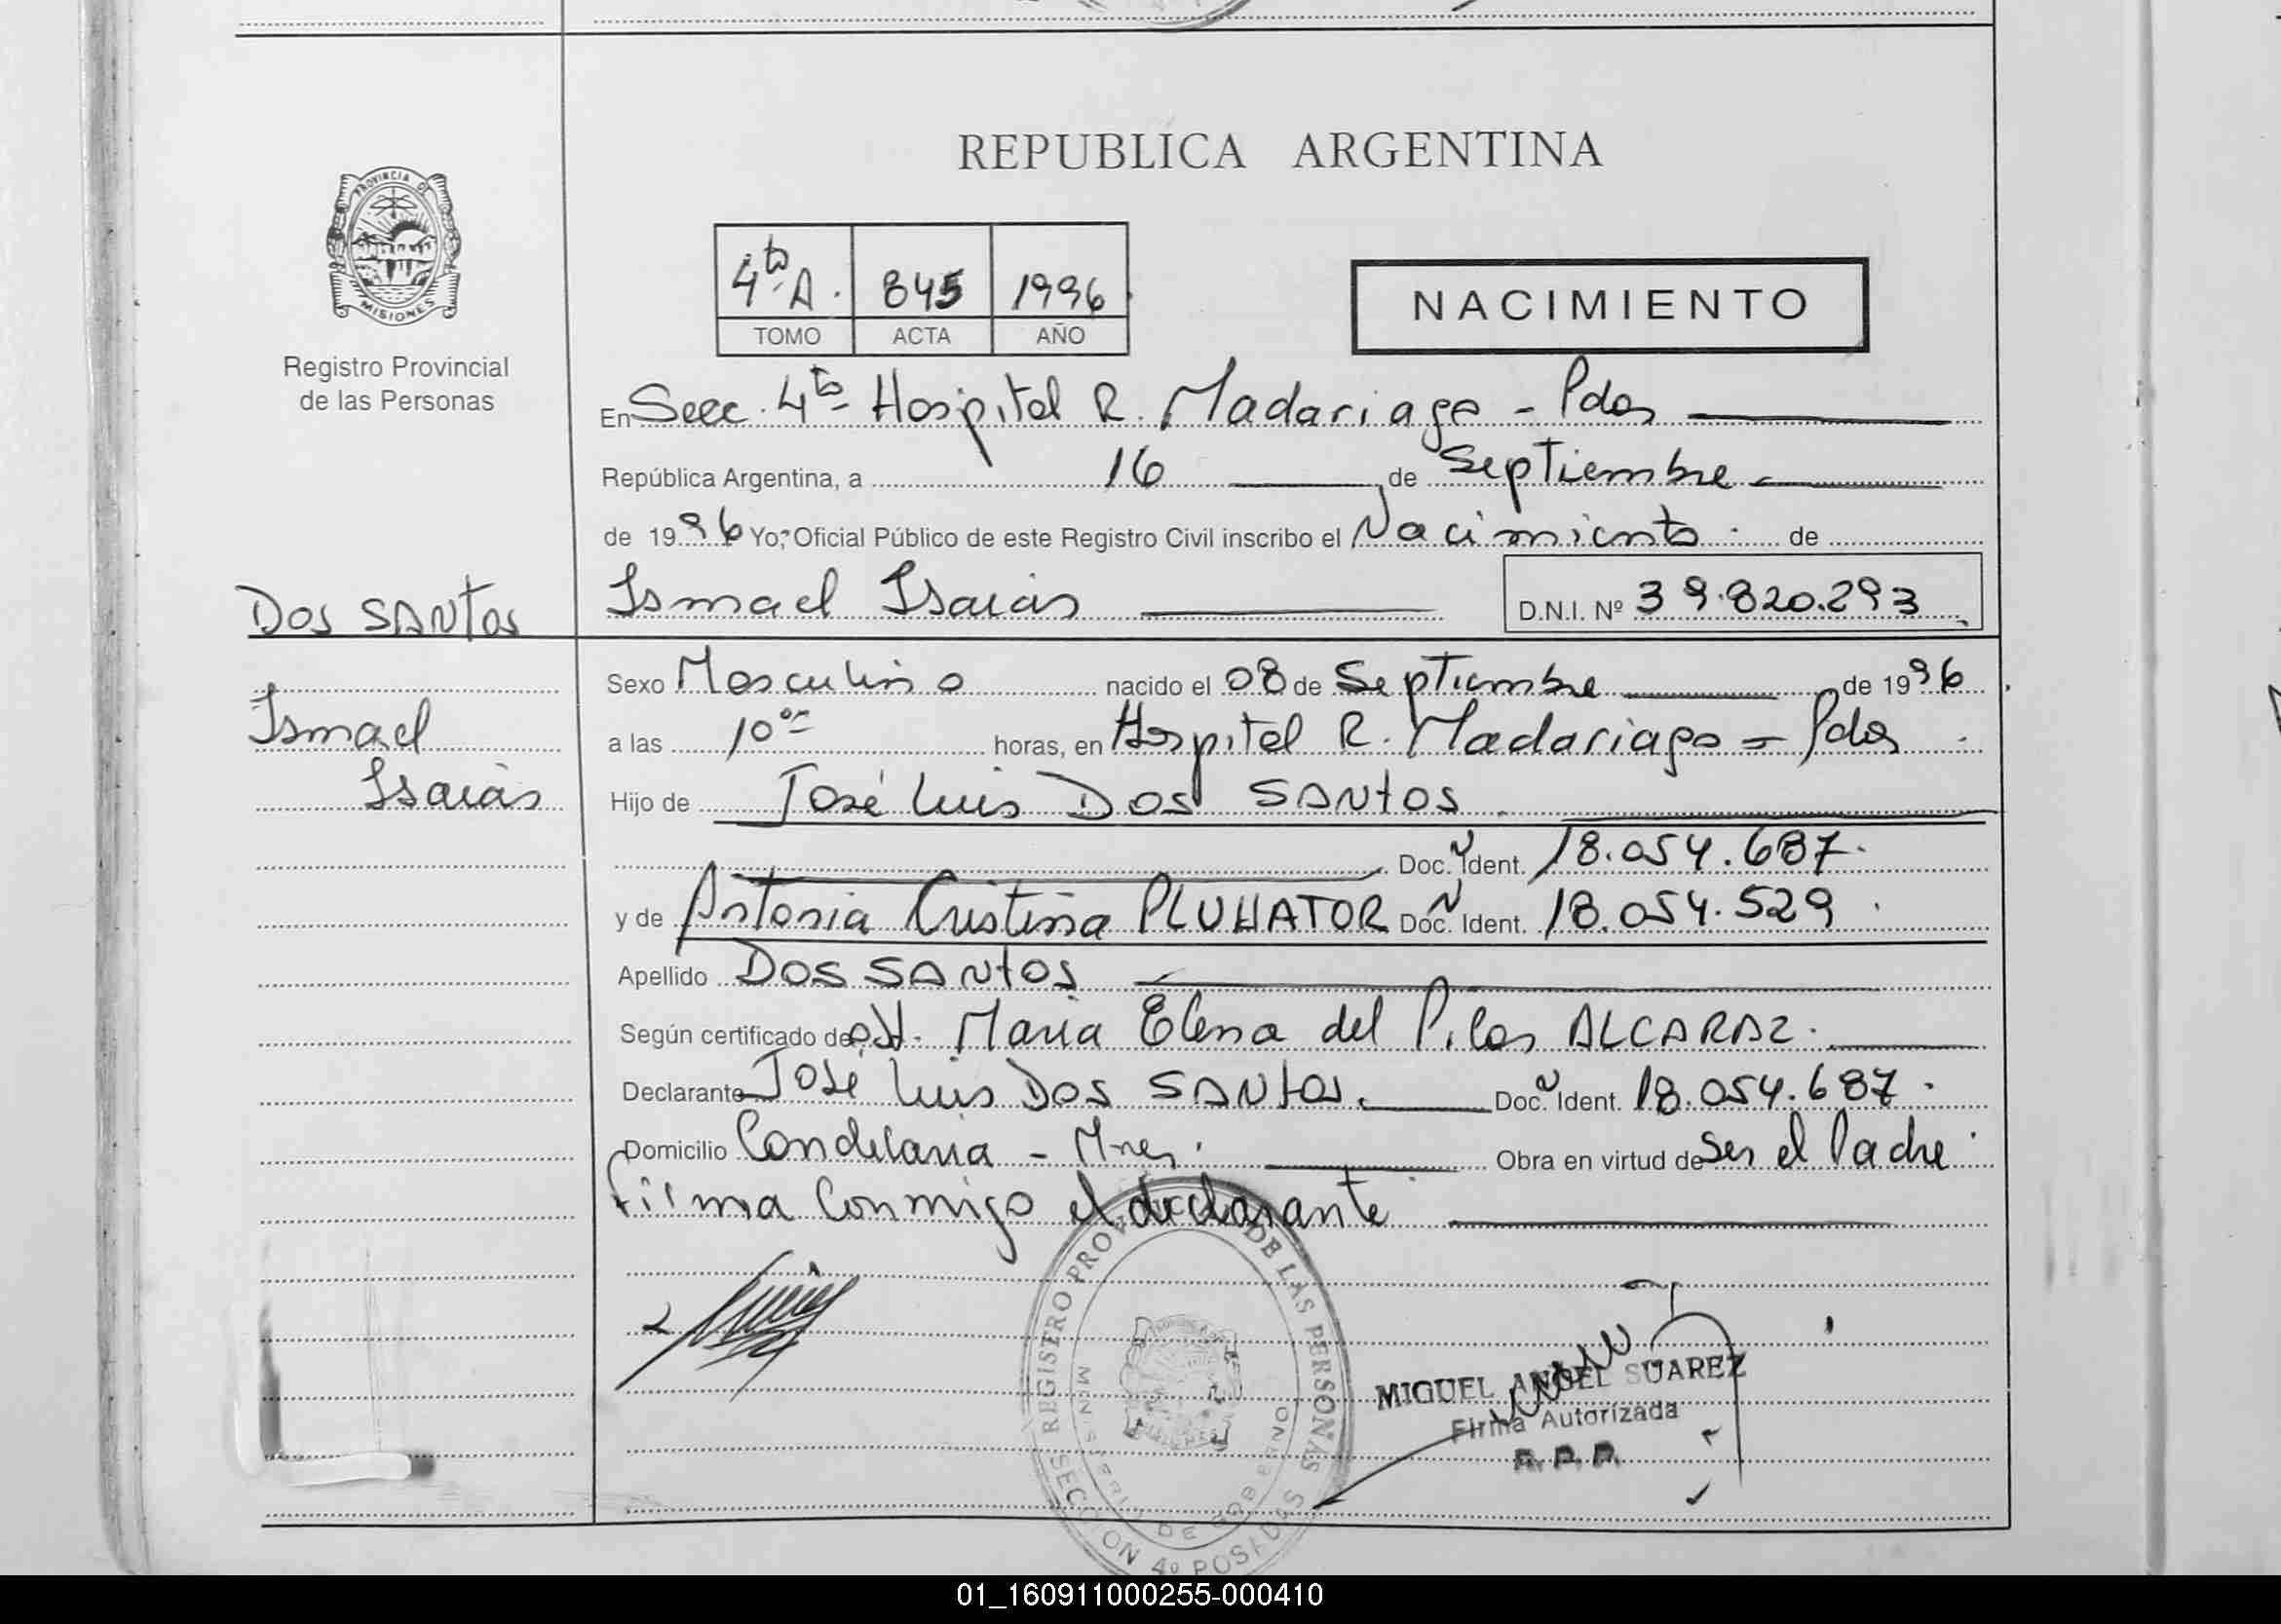 REPUBLICA ARGENTINA
PROVINCIA DE
MISIONES
Registro Provincial
de las Personas
4ta A.
845
1996
TOMO
ACTA
AÑO
NACIMIENTO
En Secc. 4ta Hospital R. Madariaga - Pdas
República Argentina, a 16 de Septiembre
de 1996 Yo, Oficial Público de este Registro Civil inscribo el Nacimiento de
DOS SANTOS
Ismael Isaias
D.N.I. Nº 39.820.293
Ismael
Isaias
Sexo Masculino nacido el 08 de Septiembre de 1996
a las 10 horas, en Hospital R. Madariaga - Pdas
Hijo de José Luis DOS SANTOS
Doc. Ident. 18.054.687
y de Antonia Cristina PLUHATOR Doc. Ident. 18.054.529
Apellido DOS SANTOS
Según certificado de María Elena del Pilar ALCARAZ
Declarante José Luis DOS SANTOS Doc. Ident. 18.054.687
Domicilio Candelaria - Mnes. Obra en virtud de Ser el Padre
firma Conmigo el declarante
REGISTRO PROV DE LAS PERSONAS
MINISTERIO DE GOBIERNO
SECCION 4º POSADAS
MIGUEL ANGEL SUAREZ
Firma Autorizada
R. P. P.
01_160911000255-000410